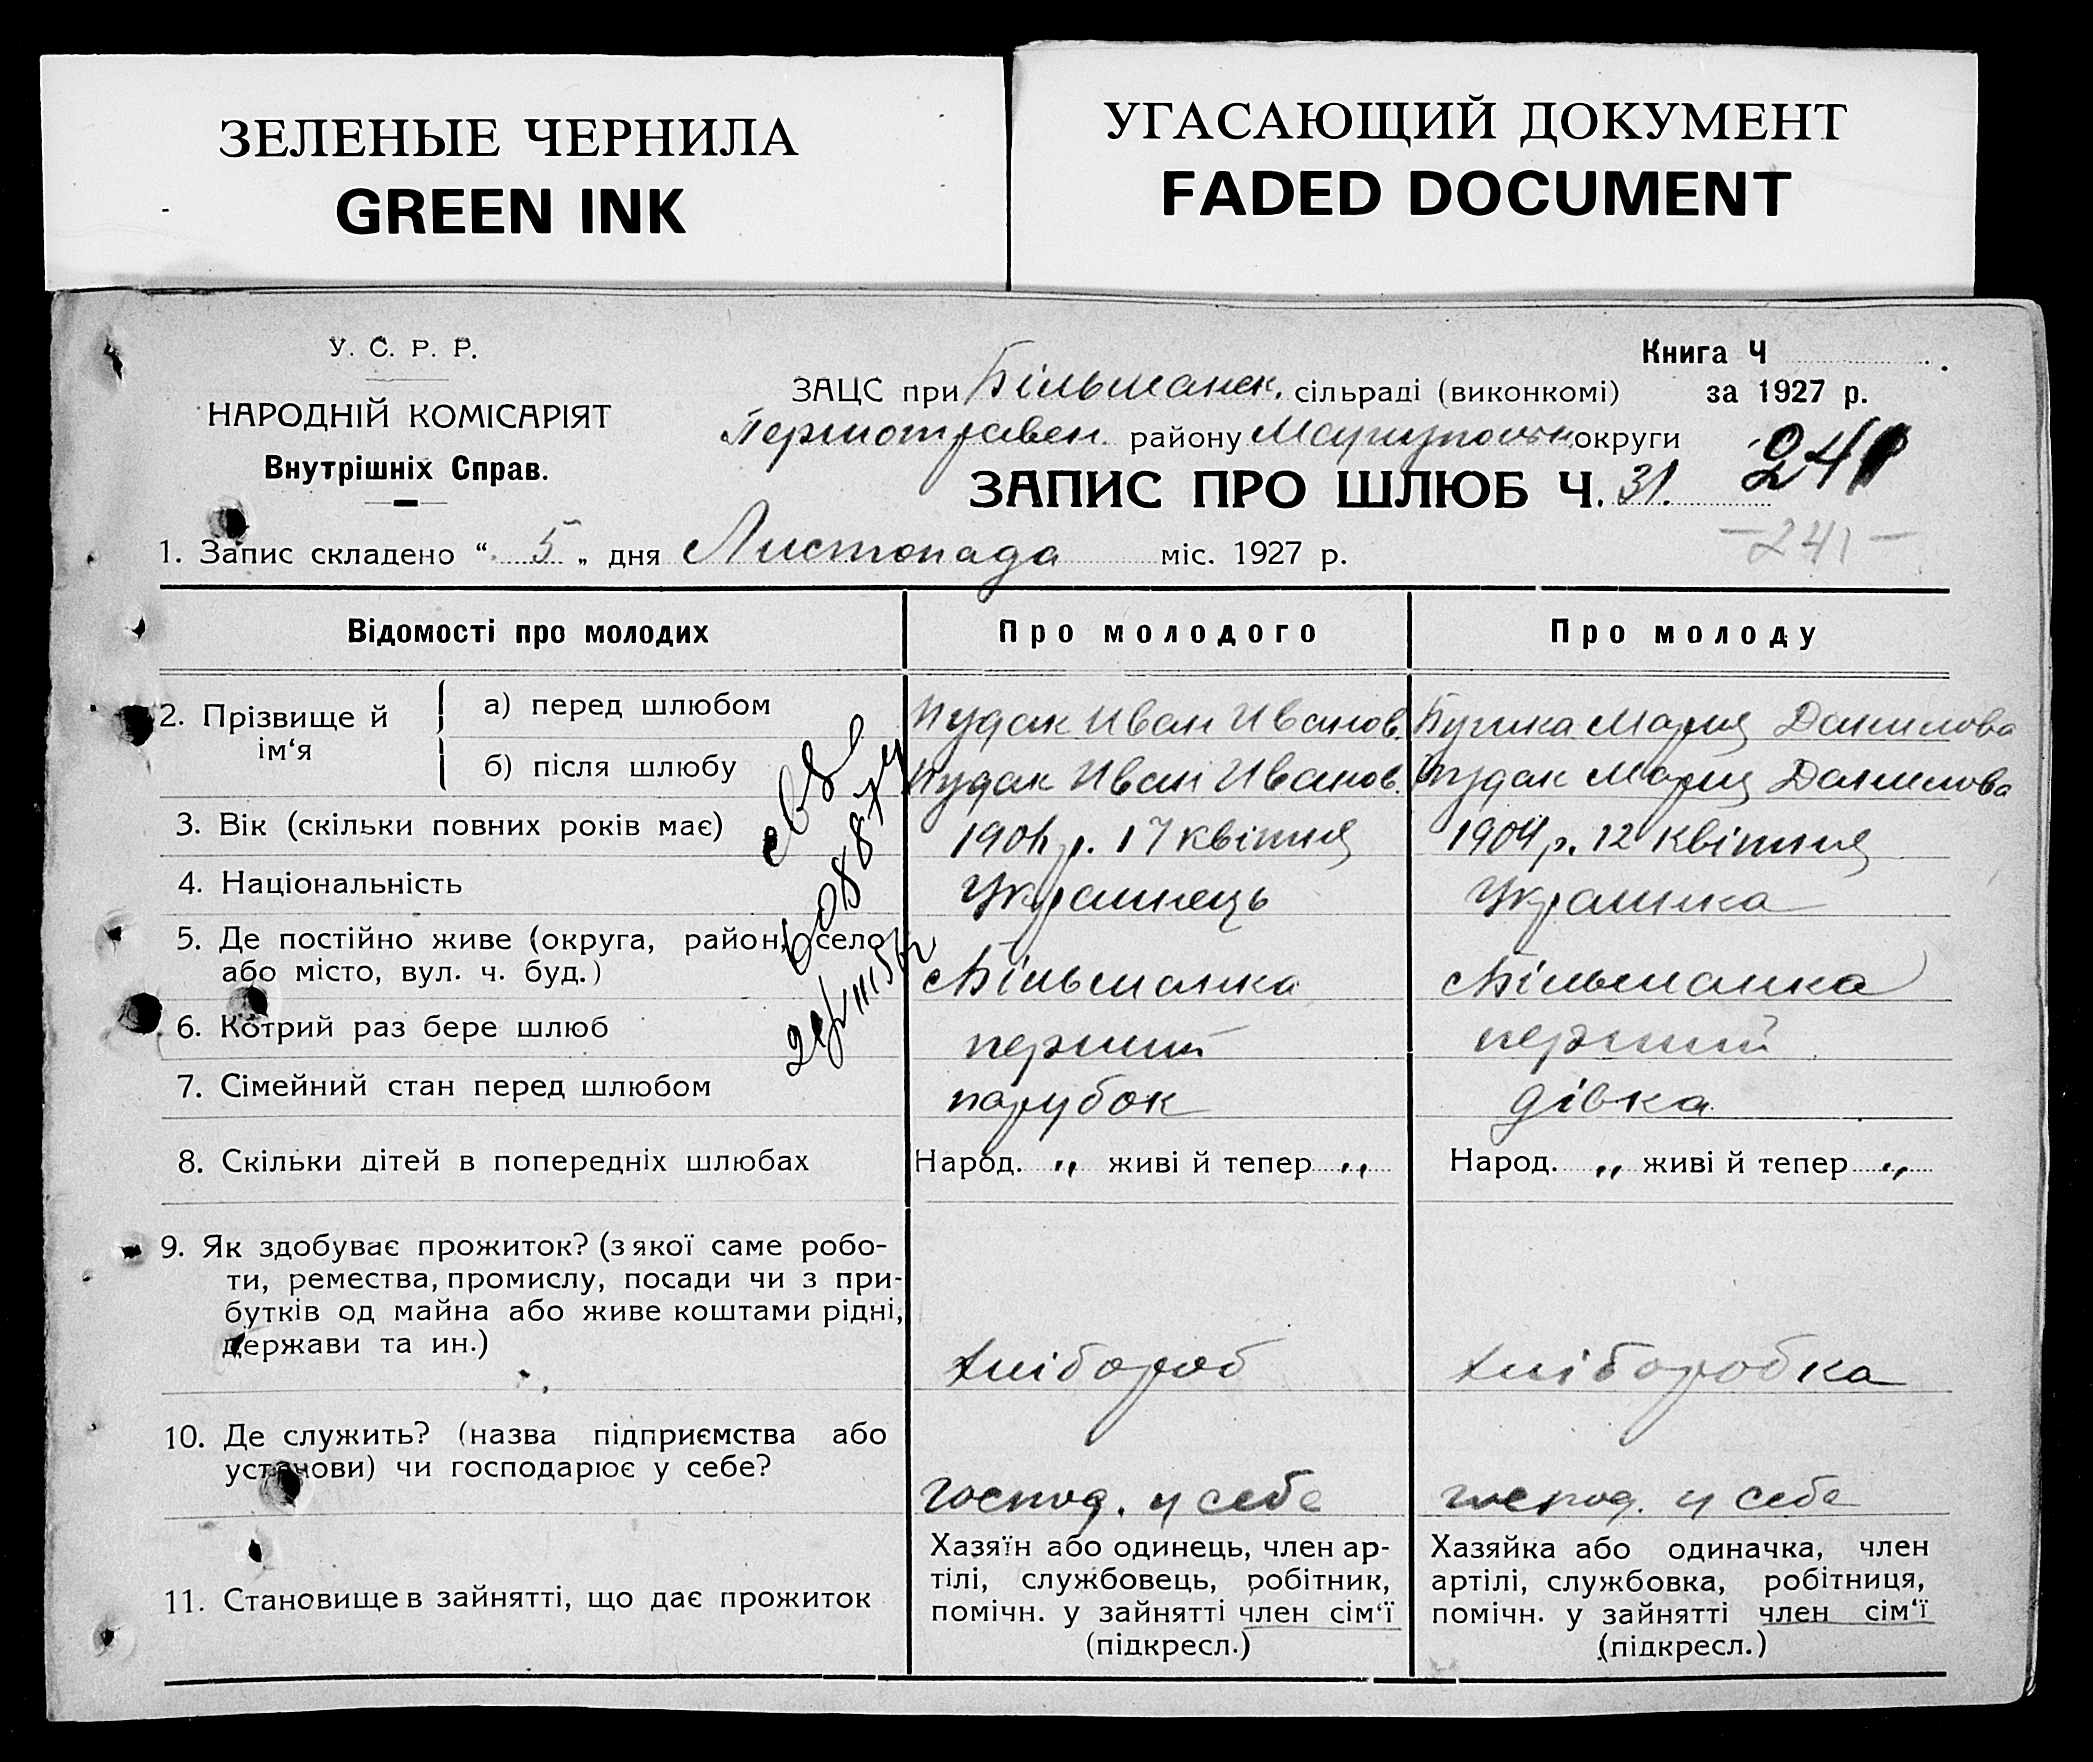 ЗЕЛЕНЫЕ ЧЕРНИЛА
GREEN INK
УГАСАЮЩИЙ ДОКУМЕНТ
FADED DOCUMENT
У. С. Р. Р.
НАРОДНІЙ КОМІСАРІЯТ
Внутрішніх Справ.
Книга Ч
ЗАЦС при Більманск. сільраді (виконкомі) за 1927 р.
Першотравен. району Маріупольськ. округи
241
ЗАПИС ПРО ШЛЮБ Ч. 31.
- 241 -
1. Запис складено “ 5 „ дня Листопада міс. 1927 р.
Відомості про молодих Про молодого Про молоду
2. Прізвище й ім‘я
а) перед шлюбом Пудак Иван Иванов. Мария Данилова
б) після шлюбу Пудак Иван Иванов. Пудак Мария Данилова
3. Вік (скільки повних років має) р. 17 квітня 1904 р. 12 квітня
4. Національність Украинець Украинка
5. Де постійно живе (округа, район, село
або місто, вул. ч. буд.) с Більманка с Більманка
6. Котрий раз бере шлюб перший перший
7. Сімейний стан перед шлюбом парубок дівка
8. Скільки дітей в попередніх шлюбах Народ. „ живі й тепер „ Народ. „ живі й тепер „
9. Як здобуває прожиток? (з якої саме робо-
ти, ремества, промислу, посади чи з при-
бутків од майна або живе коштами рідні,
держави та ин.) хлібороб хліборобка
10. Де служить? (назва підприємства або
установи) чи господарює у себе? господ. у себе господ. у себе
11. Становище в зайнятті, що дає прожиток
Хазяїн або одинець, член ар-
тілі, службовець, робітник,
помічн. у зайнятті член сім‘ї
(підкресл.)
Хазяйка або одиначка, член
артілі, службовка, робітниця,
помічн. у зайнятті член сім‘ї
(підкресл.)